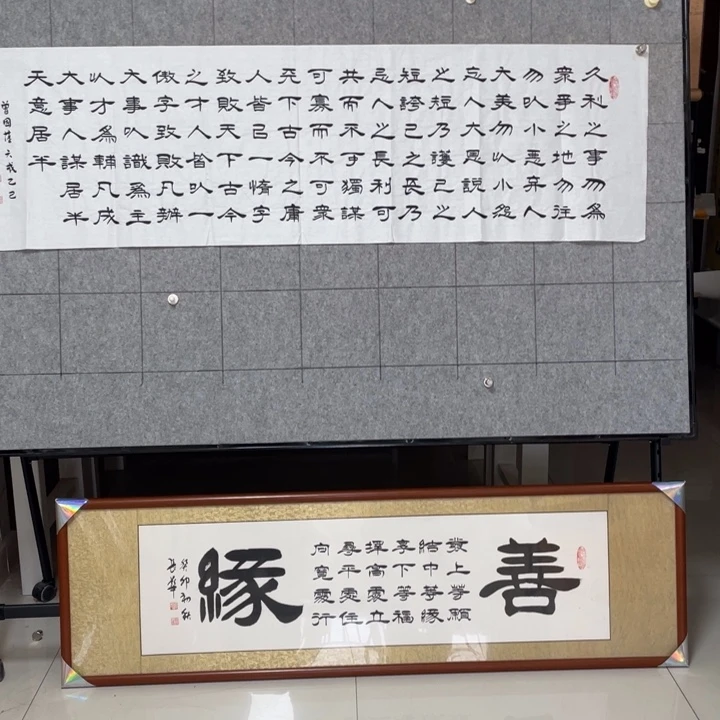 久利之事勿爲
衆爭之地勿往
勿以小惡弃人
大美勿以小怨
忘人大恩説人
之短乃護己之
短誇己之長乃
忌人之長利可
共而不可獨謀
可寡而不可衆
天下古今之庸
人皆以一惰字
致敗天下古今
之才人皆以一
傲字致敗凡辦
大事以識爲主
以才爲輔凡成
大事人謀居半
天意居半
曾國藩六戒乙巳
善
發上等願
結中等緣
享下等福
擇高處立
尋平處住
向寬處行
緣
癸卯初秋